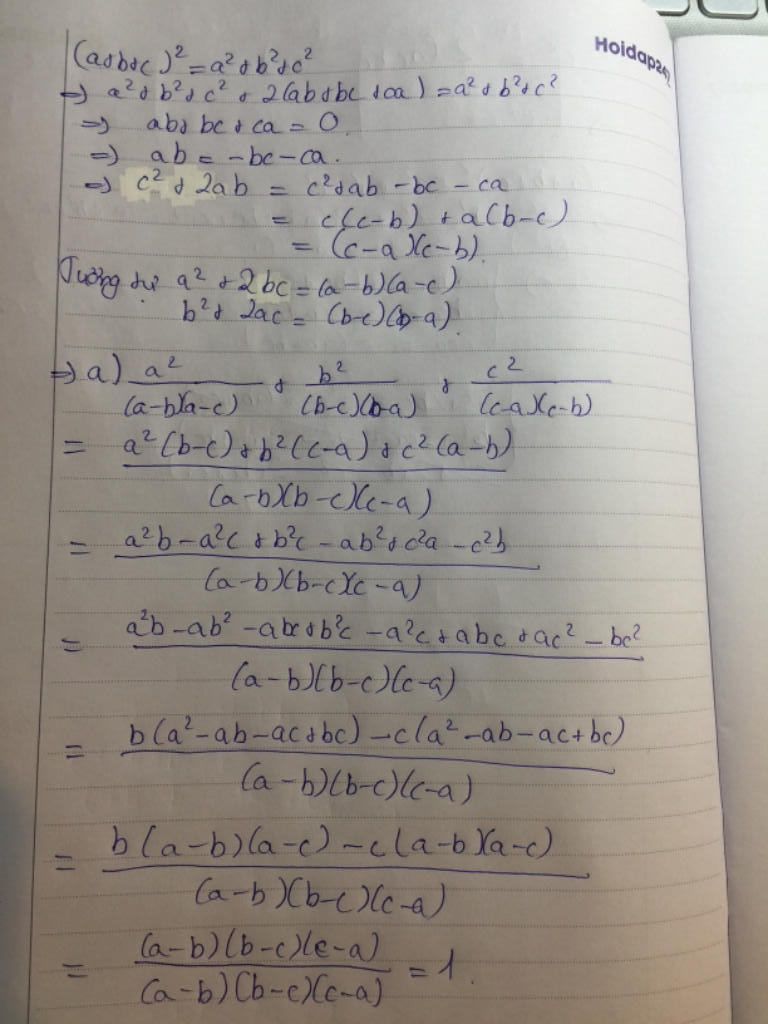 Hoidap247
(a+b+c)² = a²+b²+c²
=> a²+b²+c²+2(ab+bc+ca) = a²+b²+c²
=> ab+bc+ca = 0.
=> ab = -bc-ca.
=> c²+2ab = c²+ab-bc-ca
= c(c-b)+a(b-c)
= (c-a)(c-b).
Tương tự a²+2bc = (a-b)(a-c)
b²+2ac = (b-c)(b-a).
=> a) a²/(a-b)(a-c) + b²/(b-c)(b-a) + c²/(c-a)(c-b)
= a²(b-c)+b²(c-a)+c²(a-b)/(a-b)(b-c)(c-a)
= a²b-a²c+b²c-ab²+c²a-c²b/(a-b)(b-c)(c-a)
= a²b-ab²-abc+b²c-a²c+abc+ac²-bc²/(a-b)(b-c)(c-a)
= b(a²-ab-ac+bc)-c(a²-ab-ac+bc)/(a-b)(b-c)(c-a)
= b(a-b)(a-c)-c(a-b)(a-c)/(a-b)(b-c)(c-a)
= (a-b)(b-c)(c-a)/(a-b)(b-c)(c-a) = 1.